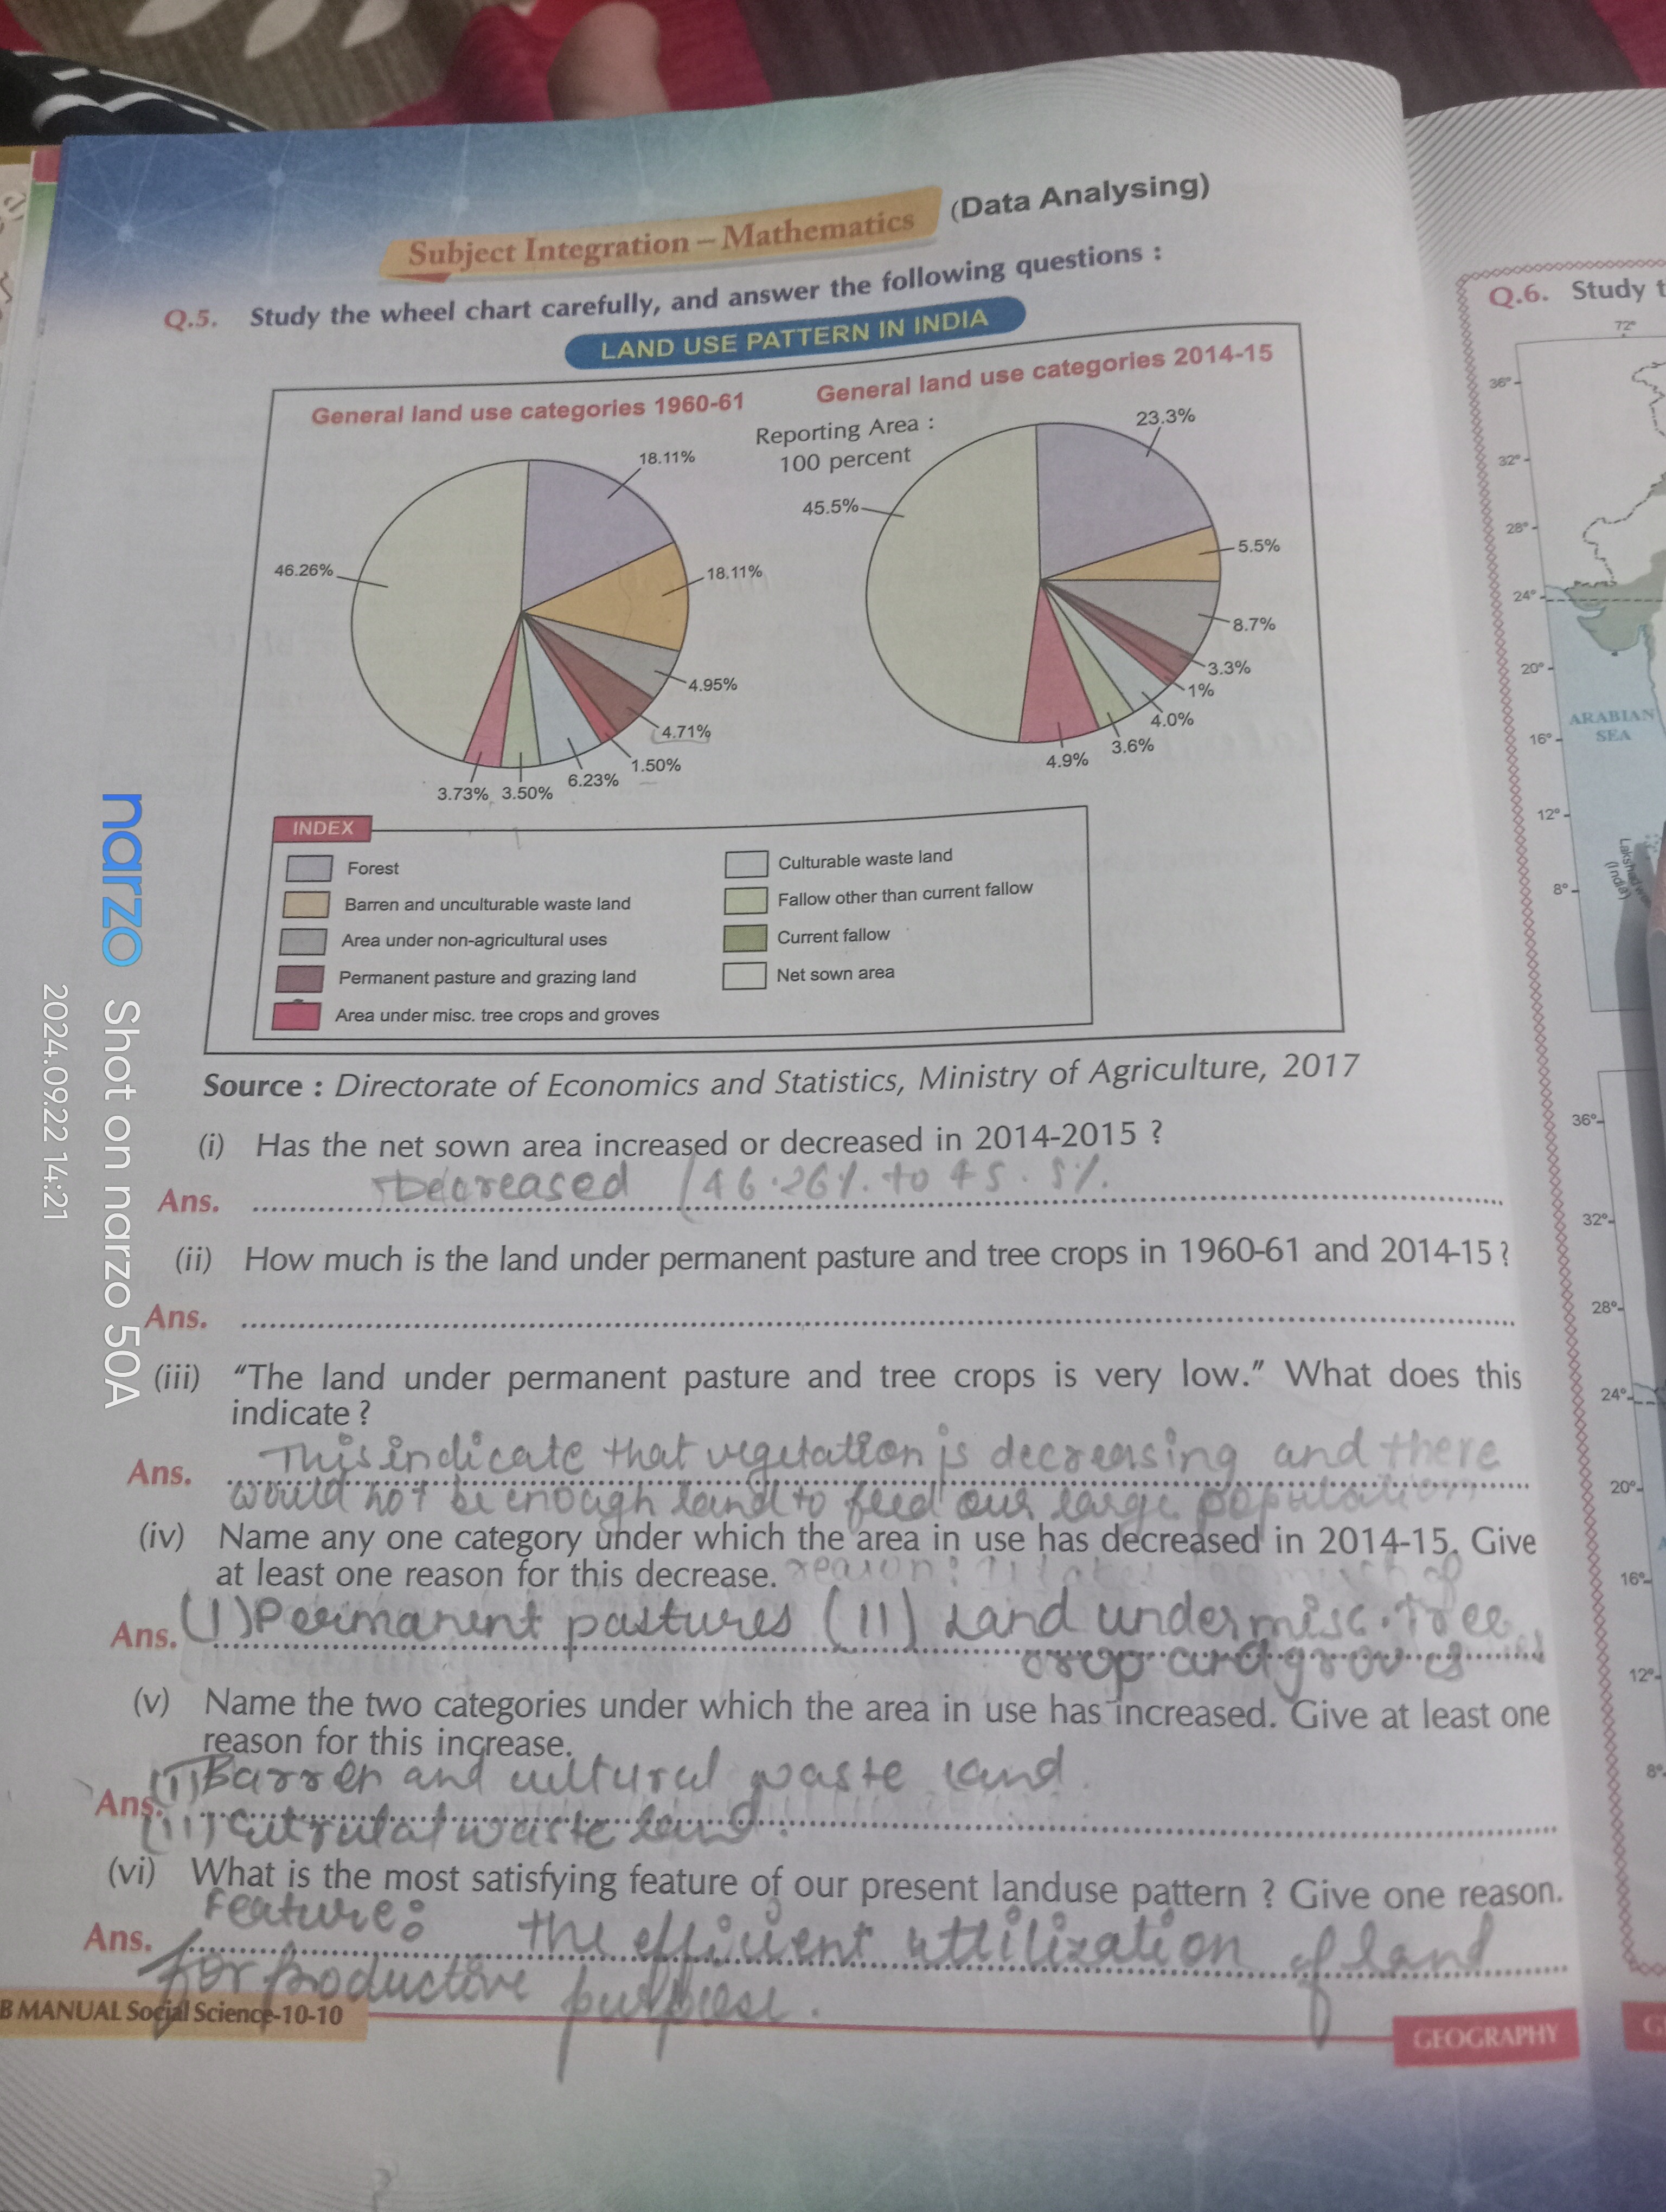 (Data Analysing)
Subject Integration – Mathematics
Q.5. Study the wheel chart carefully, and answer the following questions :
LAND USE PATTERN IN INDIA
General land use categories 1960-61
General land use categories 2014-15
Reporting Area :
100 percent
18.11%
18.11%
4.95%
4.71%
1.50%
6.23%
3.50%
3.73%
46.26%
23.3%
5.5%
8.7%
3.3%
1%
4.0%
3.6%
4.9%
45.5%
INDEX
Forest
Barren and unculturable waste land
Area under non-agricultural uses
Permanent pasture and grazing land
Area under misc. tree crops and groves
Culturable waste land
Fallow other than current fallow
Current fallow
Net sown area
Source : Directorate of Economics and Statistics, Ministry of Agriculture, 2017
(i) Has the net sown area increased or decreased in 2014-2015 ?
Ans. Decreased /46.26%. to 45.5%.
(ii) How much is the land under permanent pasture and tree crops in 1960-61 and 2014-15 ?
Ans.
(iii) “The land under permanent pasture and tree crops is very low.” What does this
indicate ?
Ans. This indicate that vegetation is decreasing and there
would not be enough land to feed our large population
(iv) Name any one category under which the area in use has decreased in 2014-15. Give
at least one reason for this decrease. reason:
Ans. (I) Permanent pastures (II) Land under misc. Tree
crop and groves
(v) Name the two categories under which the area in use has increased. Give at least one
reason for this increase.
(I) Barren and cultural waste land.
Ans.
(II) waste land.
(vi) What is the most satisfying feature of our present landuse pattern ? Give one reason.
Feature:
Ans. the efficient uttilization of land
for productive purpose.
B MANUAL Social Science-10-10
GEOGRAPHY
Q.6. Study t
72°
36°
32°
28°
24°
20°
16°
12°
8°
ARABIAN
SEA
(India)
36°
32°
28°
24°
20°
16°
12°
8°
G
narzo Shot on narzo 50A
2024.09.22 14:21